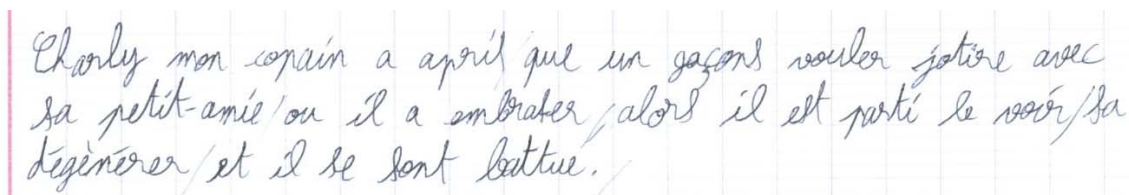 Charly mon copain a april que un gaçons vouler jotire avec
sa petit-amie/ou il a embrater/alors il est parti le voir/sa
dégènérer/et il se sont battue./